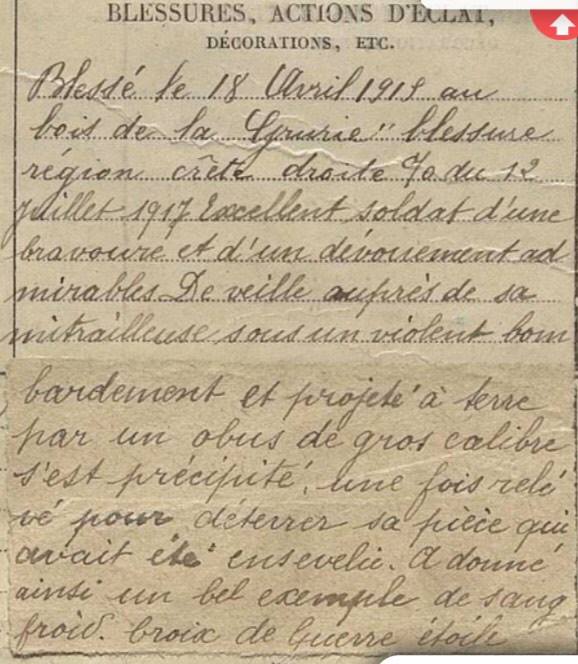 BLESSURES, ACTIONS D'ÉCLAT,
DÉCORATIONS, ETC.
Blessé le 18 Avril 1915 au
bois de la Grurie " blessure
région crête droite %o du 12
juillet 1917 Excellent soldat d'une
bravoure et d'un dévouement ad
mirables De veille auprès de sa
mitrailleuse sous un violent bom
bardement et projeté à terre
par un obus de gros calibre
s'est précipité, une fois rele
vé pour déterrer sa pièce qui
avait été ensevelie. A donné
ainsi un bel exemple de sang
froid. Croix de Guerre étoile